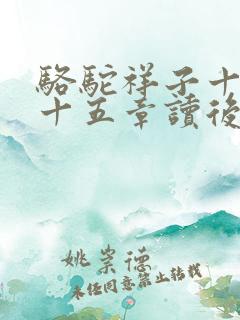 駱駝祥子十
十五章讀後
姚崇德
未經同意禁止轉載